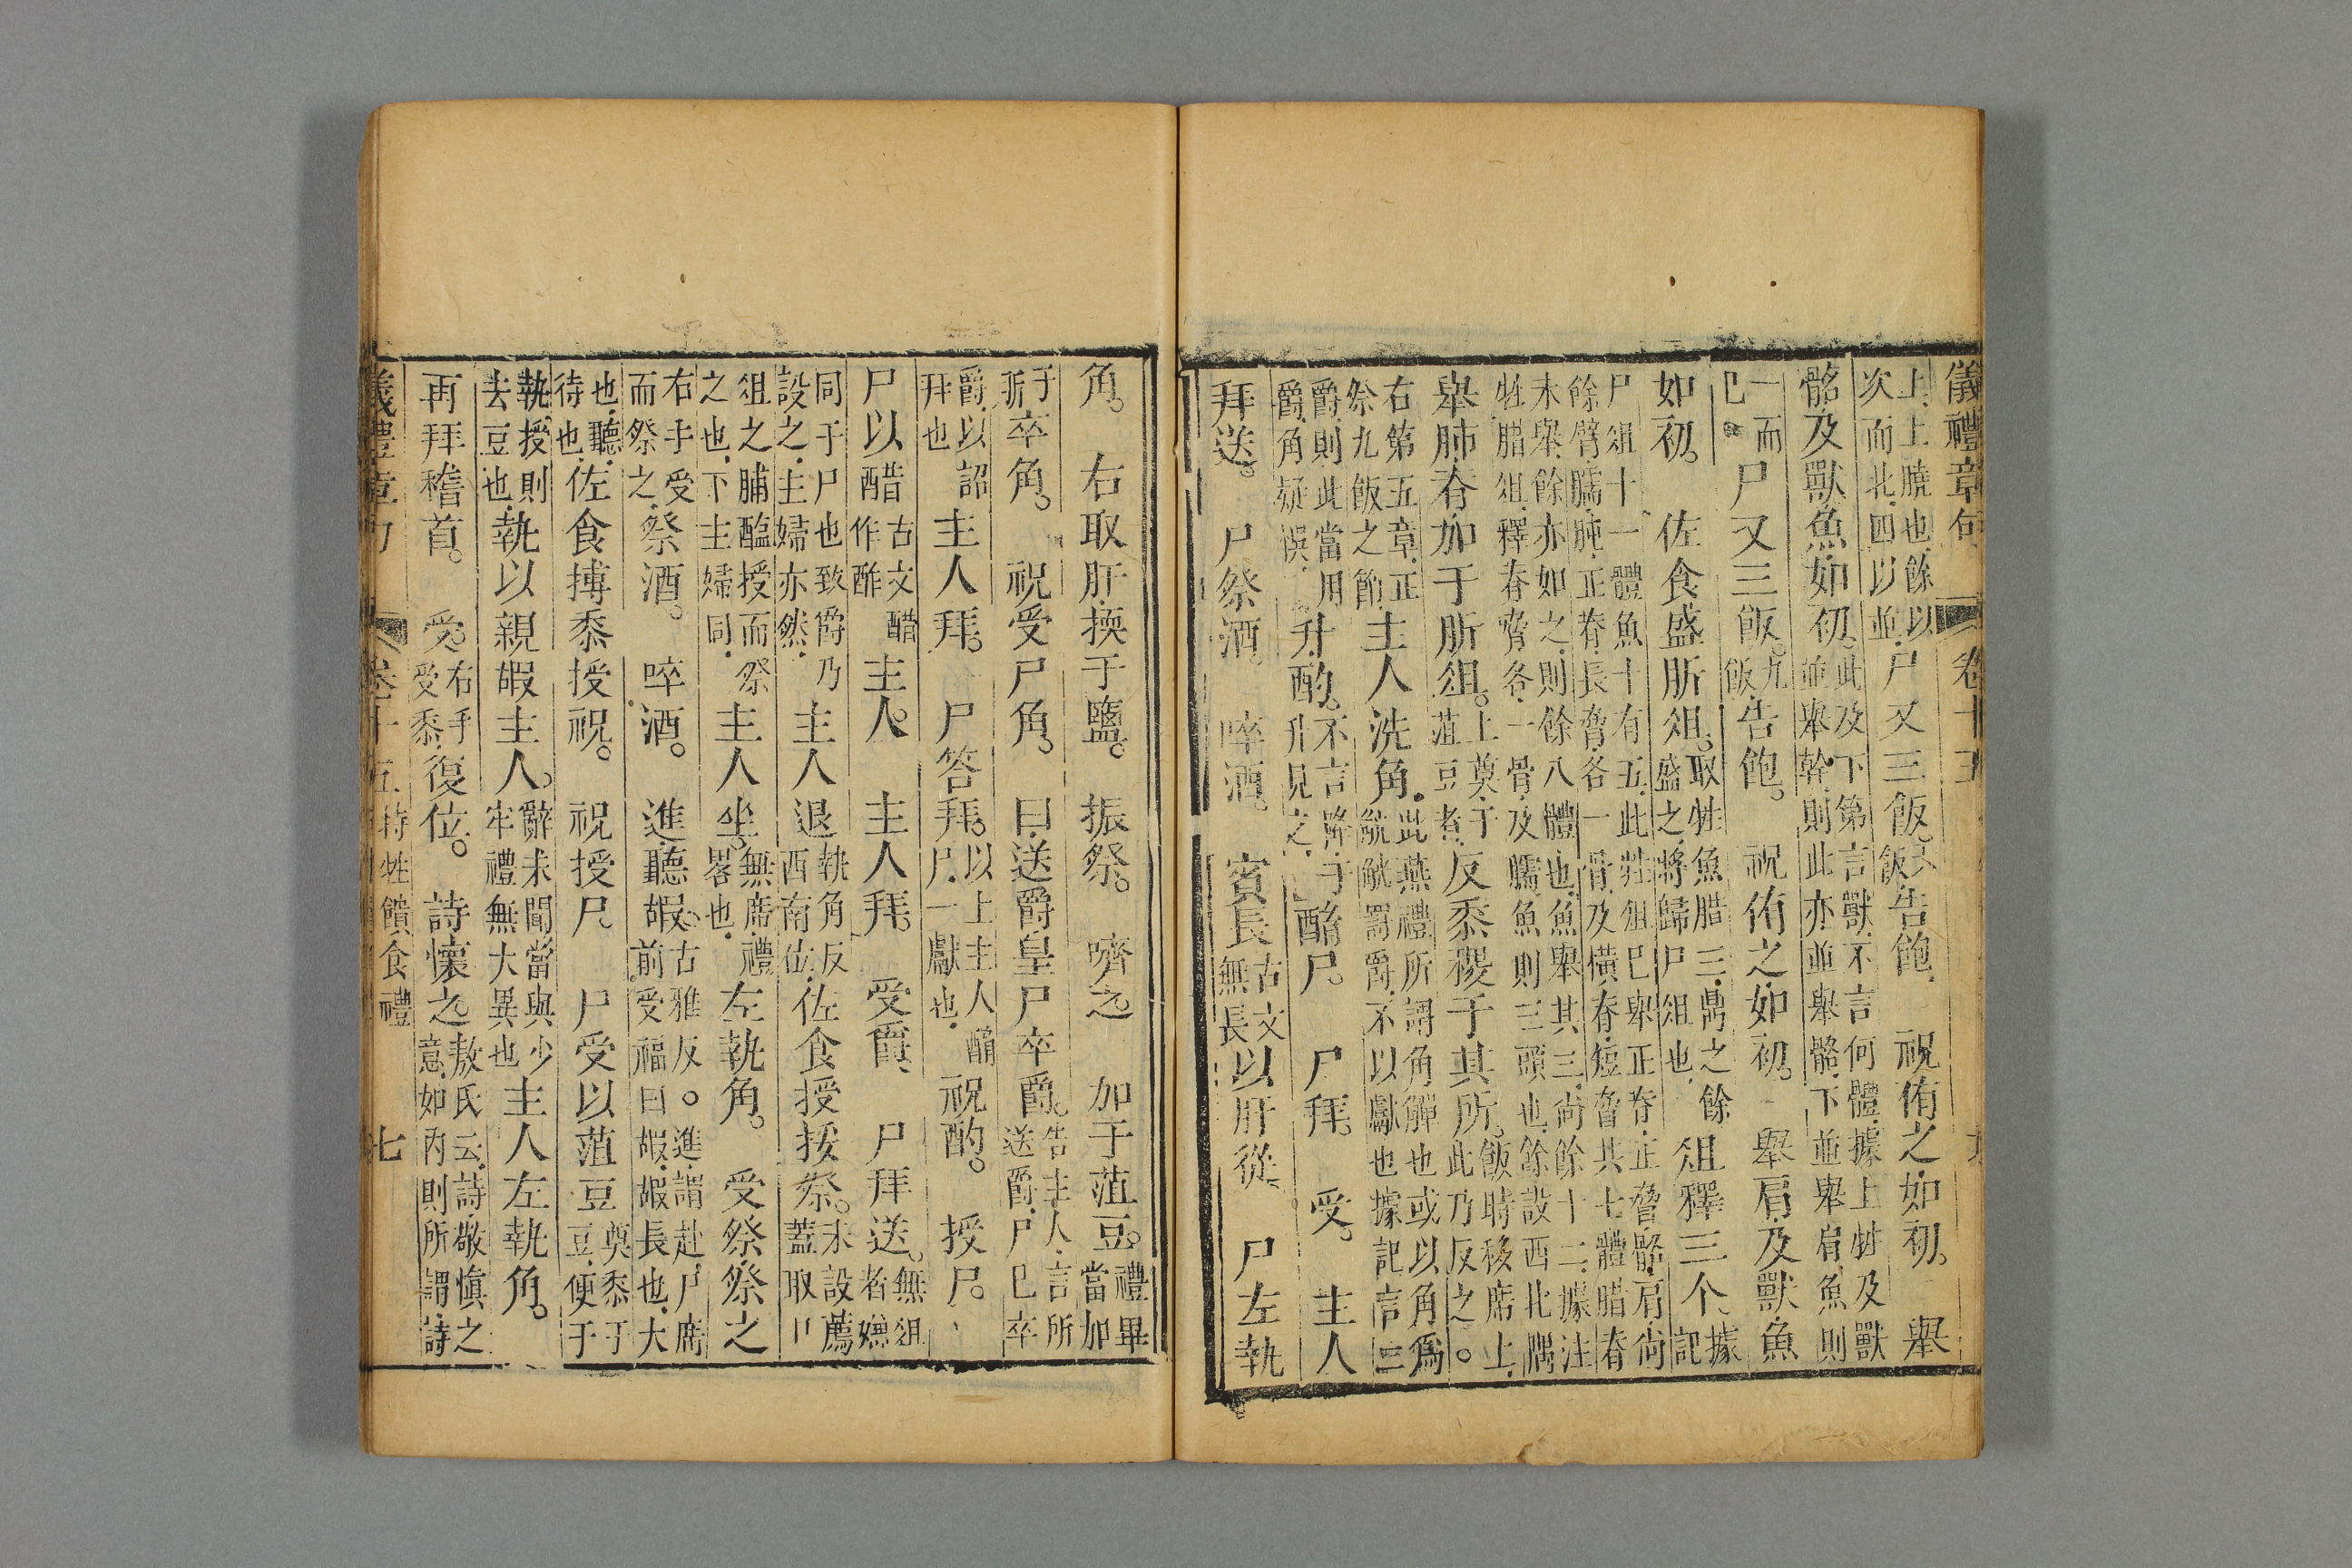 儀禮章句 卷十五
上上曉也餘以次而北四以並尸又三飯。六飯告飽 祝侑之如初。 舉
骼及獸魚如初。此及下第言獸不言何體據上牲及獸並舉幹則此亦並舉骼下並舉肩魚則
一而已尸又三飯。九飯告飽。 祝侑之如初。 舉肩及獸魚
如初。 佐食盛肵俎。取牲魚腊三鼎之餘盛之將歸尸俎也 俎釋三个。據記
尸俎十一體魚十有五此牲俎已舉正脊正脅骼肩尚餘臂臑肫正脊長脅各一骨及橫脊短脅其七體腊脊
未舉餘亦如之則餘八體也魚舉其三尚餘十二據注牲腊俎釋脊脅各一骨及臑魚則三頭也餘設西北隅
舉肺脊加于肵俎。上奠于葅豆者反黍稷于其所。飯時移席上此乃反之。
右第五章正祭九飯之節主人洗角。此燕禮所謂角觶也或以角爲觥觥罰爵不以獻也據記言三
爵則此當用爵角疑誤升酌。不言降于升見文酳尸。 尸拜。 受。 主人
拜送。 尸祭酒。 啐酒。 賓長古文無長以肝從。 尸左執
角。 右取肝㨎于鹽。 振祭。 嚌之。 加于葅豆。禮畢當加
于肵卒角。 祝受尸角。 曰送爵皇尸卒爵。告主人言所送爵尸已卒
爵以詔拜也主人拜。 尸答拜。以上主人酳尸一獻也祝酌。 授尸。
尸以醋古文醋作酢主人。 主人拜。 受爵 尸拜送。無俎者嫌
同于尸也致爵乃設之主婦亦然主人退執角反西南位佐食授挼祭。未設薦蓋取
俎之脯醢授而祭之也下主婦同主人坐。無席禮畧也左執角。 受祭祭之
右手受而祭之祭酒。 啐酒。 進聽嘏古雅反。進謂赴尸席前受福曰嘏嘏長也大
也聽待也佐食摶黍授祝。 祝授尸。 尸受以葅豆奠黍于豆便于
執授則去豆也執以親嘏主人。辭未聞當與少牢禮無大異也主人左執角。
再拜稽首。 受。右手受黍復位。 詩懷之。敖氏云詩敬慎之意如内則所謂詩
儀禮章句 卷十五 特牲饋食禮 七